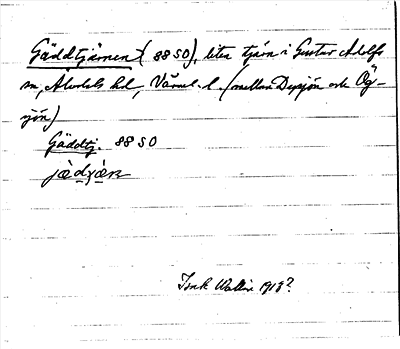 Gäddtjärnen (88 SO), liten tjärn i Gustav Adolfs
sn, Älvdals hd, Värml. l. (mellan Deysjön och Ög-
sjön)
Gäddtj. 88 SO
Wallin 1913?